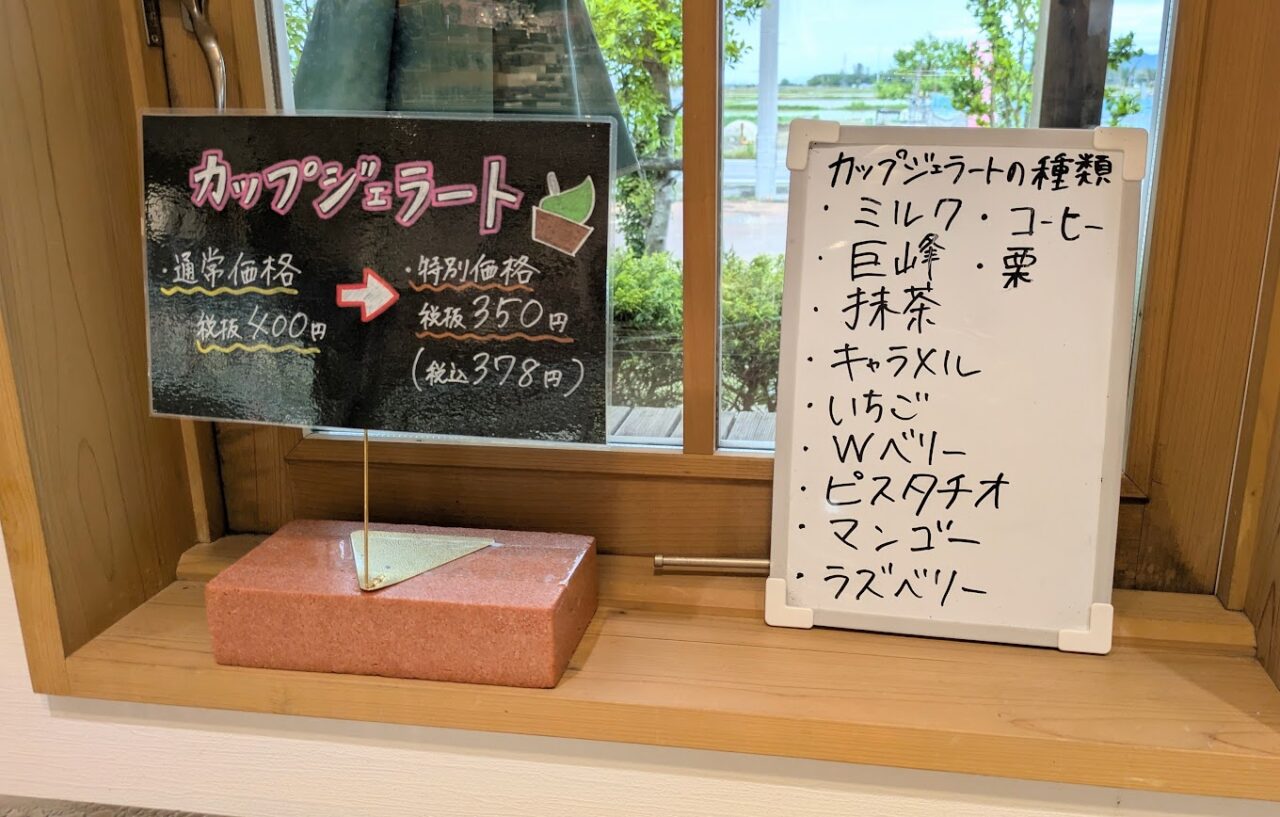 カップジェラート
・通常価格
税抜400円
・特別価格
税抜350円
(税込378円)
カップジェラートの種類
・ミルク ・コーヒー
・巨峰 ・栗
・抹茶
・キャラメル
・いちご
・Wベリー
・ピスタチオ
・マンゴー
・ラズベリー